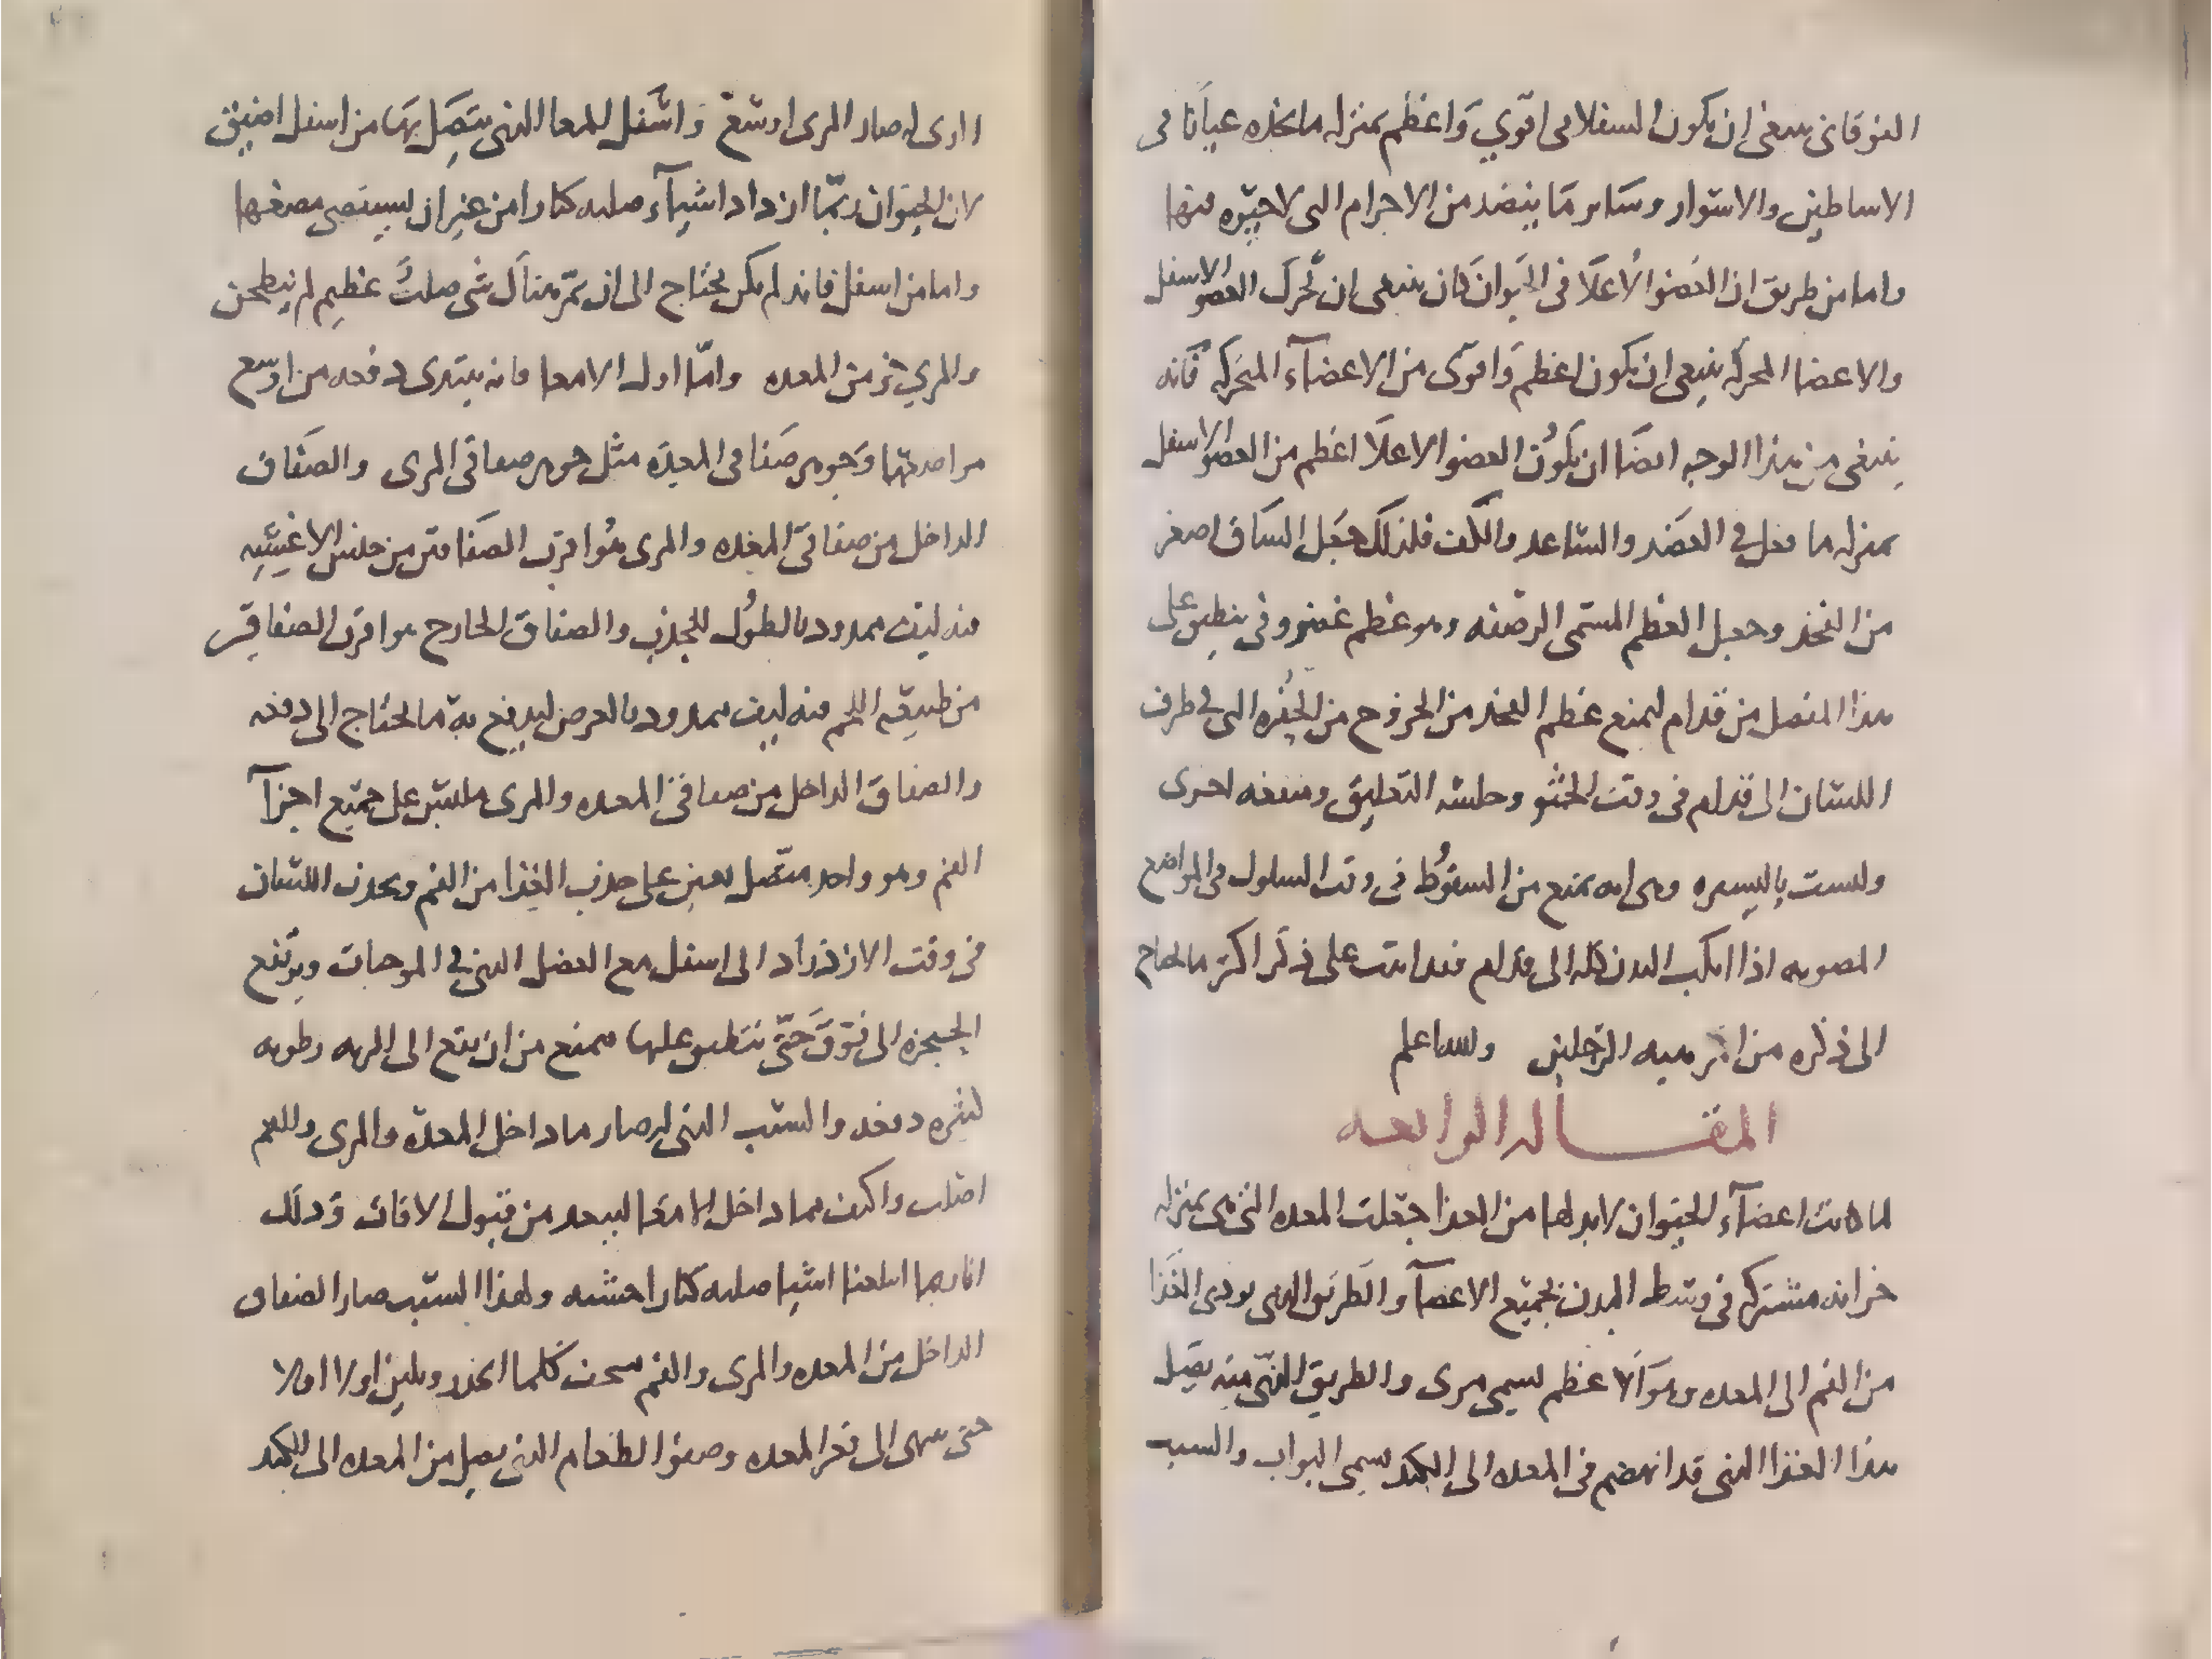 الفوقانى ينبغى ان يكون السفلا هى اقوي وَاعظم بمنزله ما نجده عيانا فى
الاساطين والاسوار وساير مَا ينضد من الاجرام التى لا حيوه فيها
واما من طريق ان العضو الأعلا فى الحيوان كان ينبغى ان يحرك العضو الاسفل
والاعضا المحركه ينبغى ان يكون اعظم وَاقوى من الاعضآء المتحركه فَانه
ينبغى من هذا الوجه ايضَا ان يكوُن العضو الاعلَا اعظم من العضو الاسفل
بمنزله ما فعل فى العضد والساعد والكف فلذلك جعَل السَاق اصغر
من الفخذ وجعل العظم المسمى الرضفه وهو عظم غضروفى ينطبق على
هذا المفصل من قدام ليمنع عظم الفخذ من الخروج من الحفره التى فى طرف
اللسان الى قدام فى وقت الجثو وجلسه التعليق ومنفعه اخرى
وليست باليسيره وهى انه يمنع من السقوُط فى وقت السلوك فى المواضع
المصوبه اذا انكب البدن كله الى قدام فقد اتيت على ذكر اكثر ما يحتاج
الى ذكره من امر هيه الرجلين والله اعلم
المقـــاله الرابعه
لما كانت اعضآء الحيوان لابد لها من الغذا جعلت المعده التى هى بمنزله
خزانه مشتركه فى وسط البدن لجميع الاعضآ والطريق الذى يودى الغَذا
من الفم الى المعده وهوَ الاعظم يسمى مرى والطريق الذى منه يصل
هذا الغذا الذى قد انهضم فى المعده الى الكبد يسمى البواب والسبب
الذى له صار المرى اوسع وَاسَفل للمعا الذى يتصِل بهَا من اسفل اضيق
لان الحيَوان ربمّا ازداد اشيآء صلبه كبارا من غير ان يستقصى مضغها
واما من اسفل فانه لم يكن يحتاج الى ان يمرّ هناَك شى صلب عظيم لم ينطحن
والمري جز من المعده وامّا اول الامعا فانه يبتدى دفعه من اوسع
مواضعها وَجوهر صفَاقى المعده مثل جوهر صفاقى المرى والصفَاق
الداخل من صفاقى المعده والمرى هُو اقرب الصفاقين من جنس الاغشيه
فيه ليف ممدود بالطوُل للجذب والصفاق الخارج هو اقرب الصفاقين
من طبيعه اللحم فيه ليف ممدود بالعرض ليدفع به ما يحتاج الى دفعه
والصفاق الداخل من صفاقى المعده والمرى ملتبس على جميع اجزآ
الفم وهو واحد متصل يعين على جذب الغذا من الفم ويجذب اللسان
فى وقت الازدراد الى اسفل مع العضل الذى فى الموجبات ويرتفع
الحنجره الى فوَق حَتى ينطبق عليها فيمنع من ان يقع الى الريه رطوبه
كثيره دفعه والسبب الذى له صار ما داخل المعده والمرى والفم
اصلب واكثف مما داخل الامعا ليبعد من قبول الافات وَذلك
انا ربما ابتلعنا اشيا صلبه كبارا خشنه ولهذا السبب صار الصفاق
الداخل من المعده والمرى والفم يسخن كلما انحدر ويلين اولا اولا
حتى ينتهى الى قعر المعده وصفو الطعام الذى يصل من المعده الى الكبد